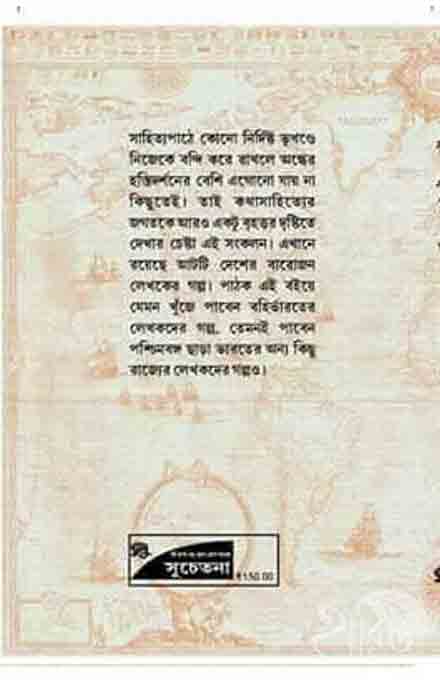 সাহিত্যপাঠে কোনো নির্দিষ্ট ভূখণ্ডে
নিজেকে বন্দি করে রাখলে অন্ধের
হস্তিদর্শনের বেশি এগোনো যায় না
কিছুতেই। তাই কথাসাহিত্যের
জগতকে আরও একটু বৃহত্তর দৃষ্টিতে
দেখার চেষ্টা এই সংকলন। এখানে
রয়েছে আটটি দেশের বারোজন
লেখকের গল্প। পাঠক এই বইয়ে
যেমন খুঁজে পাবেন বহির্ভারতের
লেখকদের গল্প, তেমনই পাবেন
পশ্চিমবঙ্গ ছাড়া ভারতের অন্য কিছু
রাজ্যের লেখকদের গল্পও।
সুচেতনা
₹150.00